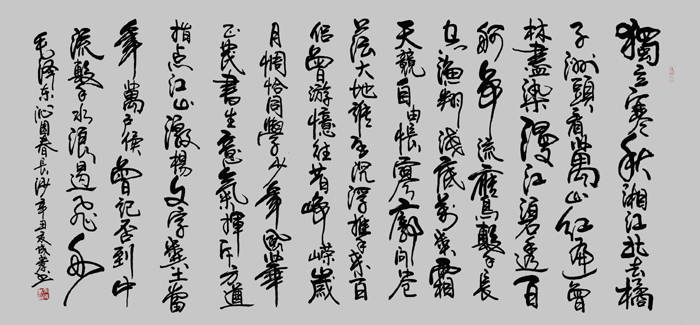 獨立寒秋湘江北去橘
子洲頭看萬山红遍曾
林盡染漫江碧透百
舸爭流鷹擊長
空漁翔淺底萬类霜
天競自由悵寥廓问苍
茫大地誰主沉浮攜来百
侣曾游憶往昔崢嶸歲
月稠恰同學少年風華
正茂書生意氣揮斥方遒
指点江山激揚文字糞土當
年萬户侯曾記否到中
流擊水浪遏飛舟
毛泽东沁园春长沙辛丑